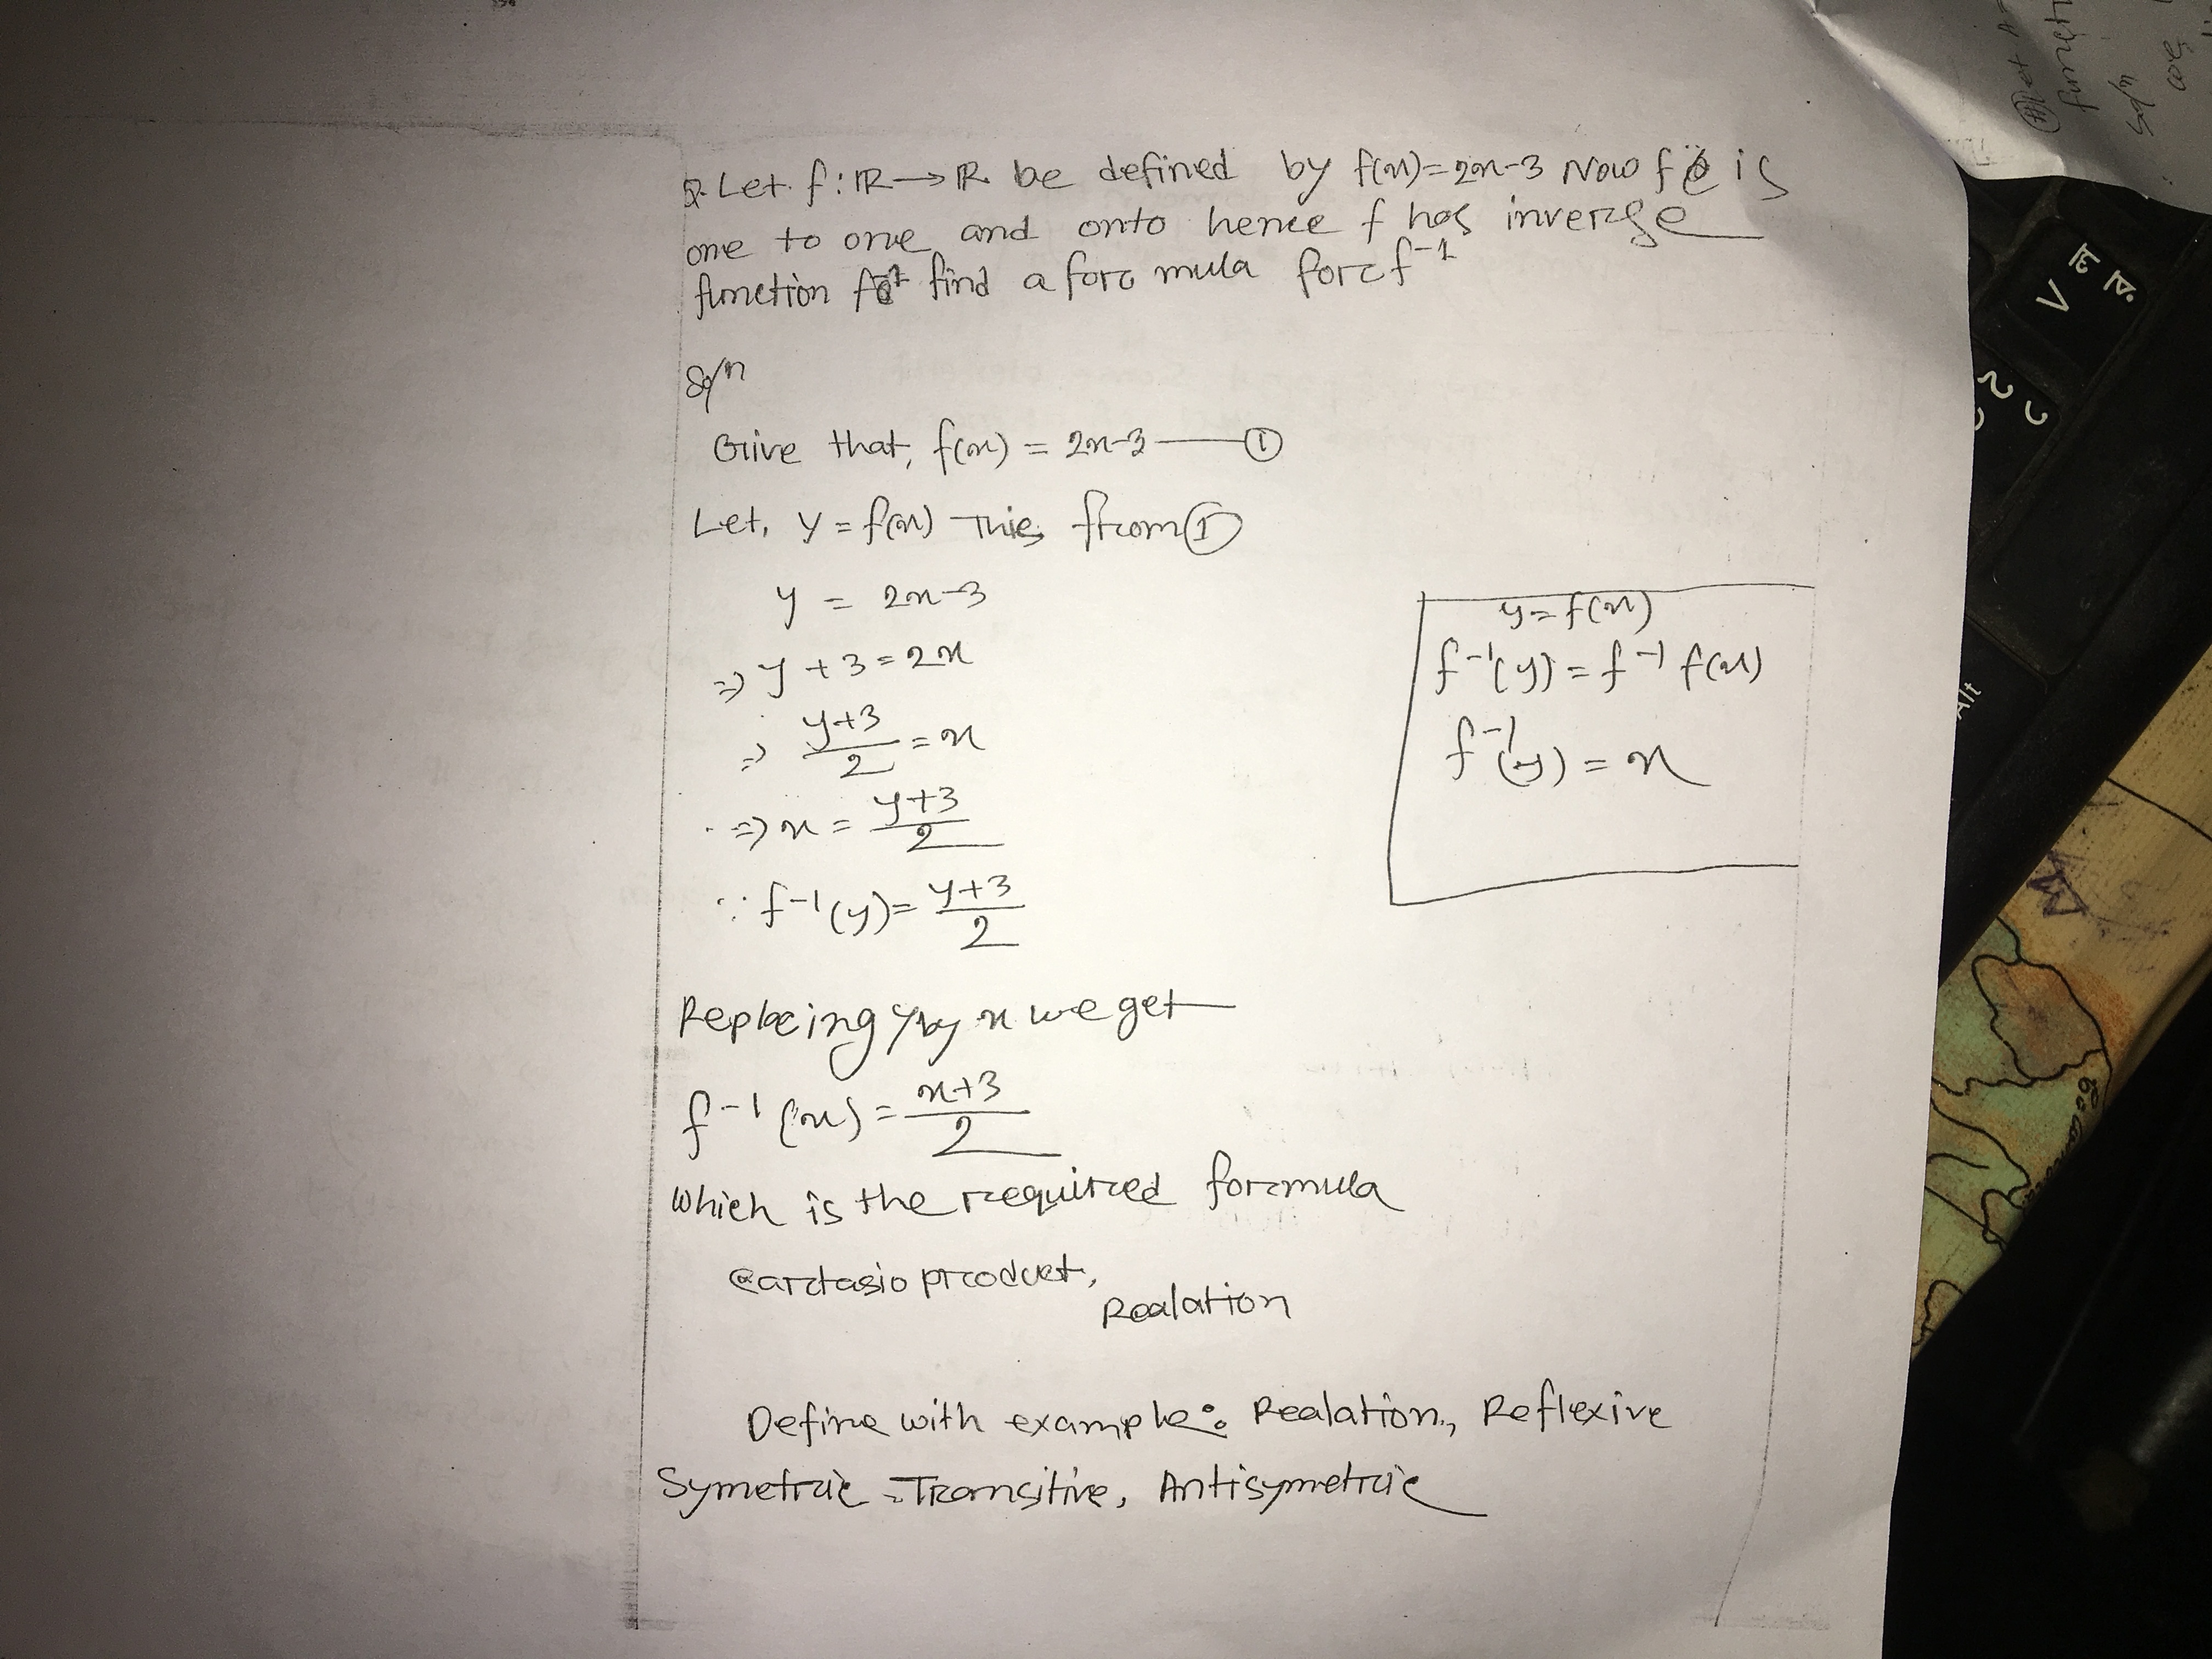 Q. Let f: R → R be defined by f(x)=2x-3 Now f is
one to one and onto hence f has inverse
function find a formula for f⁻¹
Solⁿ
Give that, f(x) = 2x-3 — ①
Let, y = f(x) This from ①
y = 2x-3
⇒ y + 3 = 2x
⇒ (y+3)/2 = x
⇒ x = (y+3)/2
∵ f⁻¹(y) = (y+3)/2
y = f(x)
f⁻¹(y) = f⁻¹ f(x)
f⁻¹(y) = x
Replacing y by x we get
f⁻¹(x) = (x+3)/2
which is the required formula
Cartasio product,
Realation
Define with example: Realation, Reflexive
Symetric, Transitive, Antisymetric
V ल
Alt